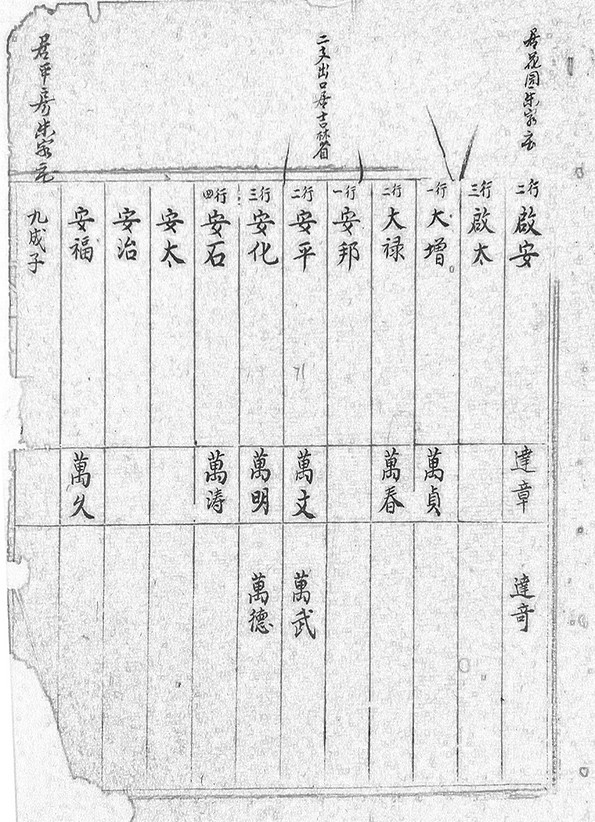 居花园朱家屯
二支出口居吉林省
居平房朱家屯
二行 啟安 達章 達奇
三行 啟太
一行 大增 萬貞
二行 大禄 萬春
一行 安邦
二行 安平 萬文 萬武
三行 安化 萬明 萬德
四行 安石 萬涛
安太
安治
安福 萬久
九成子